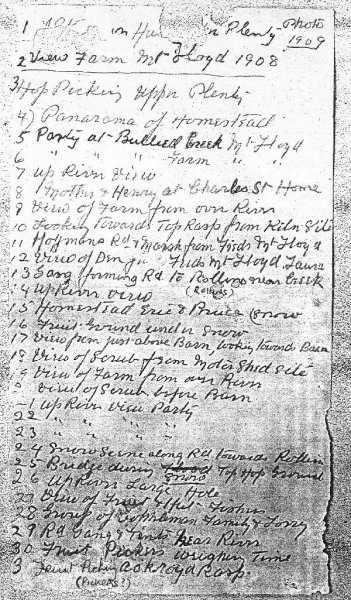 1 on Plenty Photo
1909
2 View Farm Mt Lloyd 1908
3 Hop Picking Upper Plenty
4) Panarama of Homestead
5 Party at Bullied Creek Mt Lloyd
6 " " " Farm " "
7 Up River View
8 Mother & Henry at Charles St Home
9 View of Farm from over River
10 Looking Towards Top Rasp from Kiln Site
11 Hoffmans Rd & Marsh from Freds Mt Lloyd
12 View of " Freds Mt Lloyd
13 Gang forming Rd to Rollins near Creek
(Rollins)
14 Up River View
15 Homestead Eric & Bruce (Snow
16 Fruit Ground under Snow
17 View from just above Barn, looking towards
18 View of Scrub from Motor Shed Site
19 View of Farm from over River
0 View of Scrub before Barn
1 Up River View Party
22 " " " "
23 " " " "
24 Snow Scene along Rd Towards Rollins
25 Bridge during Snow Top Hop Ground
26 Up River Large Hole
27 View of Fruit
28 Group of Family & Lorry
29 Rd Gang & Tents Near River
30 Fruit Pickers Time
3 Fruit Picking Ackroyd Rasp
(Pickers?)